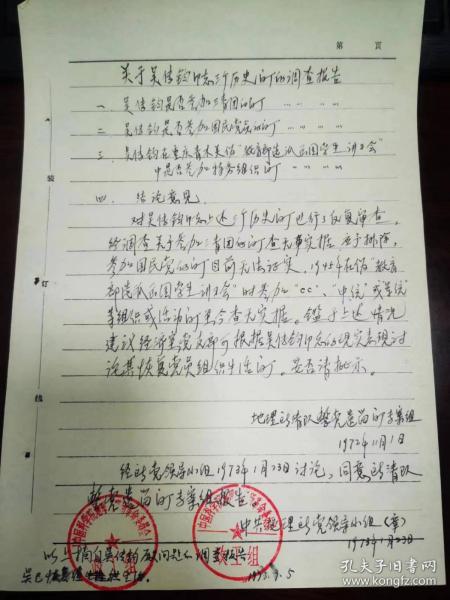 第 頁
关于吴传钧同志三个历史问题的调查报告
一、吴传钧是否参加三青团问题 … … …
二、吴传钧是否参加国民党问题 … … …
三、吴传钧在重庆青木关伪"教育部选派留学生讲习会"
中是否参加特务组织问题 … … …
四、结论意见
对吴传钧同志上述三个历史问题进行了反复审查,
经调查关于参加三青团问题查无事实据 应予排除,
参加国民党问题目前无法证实,1945年在伪"教育
部选派留学生讲习会"时参加"CC"、"中统"或军统
等组织或活动问题至今查无实据。鉴于上述情况
建议经济室党支部可根据吴传钧同志的现实表现讨
论其恢复党员组织生活问题,是否请批示。
地理所清队整党遗留问题专案组
1972年11月1日
经所党领导小组1973年1月23日讨论,同意所清队
整党遗留问题专案组报告
中共地理所党领导小组(章)
1973年1月23日
以上摘自吴传钧历史问题的调查报告
吴已恢复组织生活。
装
订
线
孔夫子旧书网